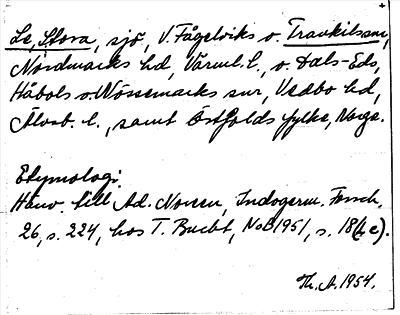 Le, Stora, sjö, V. Fågelviks o. Trankilssnr,
Nordmarks hd, Värml. l., o. Dals-Eds,
Håbols o. Nössemarks snr, Vedbo hd,
Älvsb. l., samt Östfolds fylke, Norge.
Etymologi.
Hänv. till Ad. Noreen, Indogerm. Forsch.
26, s. 224, hos T. Bucht, NoB 1951, s. 18
Th. A. 1954.